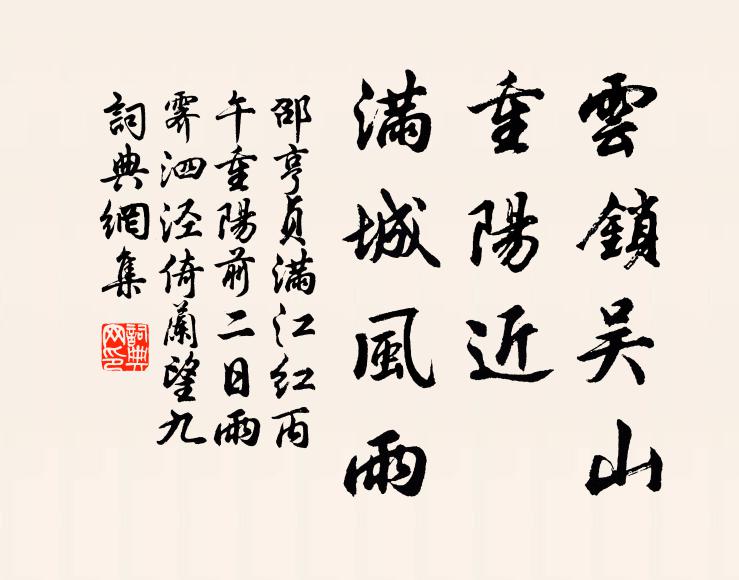 雲鎖吴山
重陽近
滿城風雨
邵亨貞滿江紅丙
午重陽前二日雨
霁泗泾倚蘭望九
詞典網集
詞典
网印